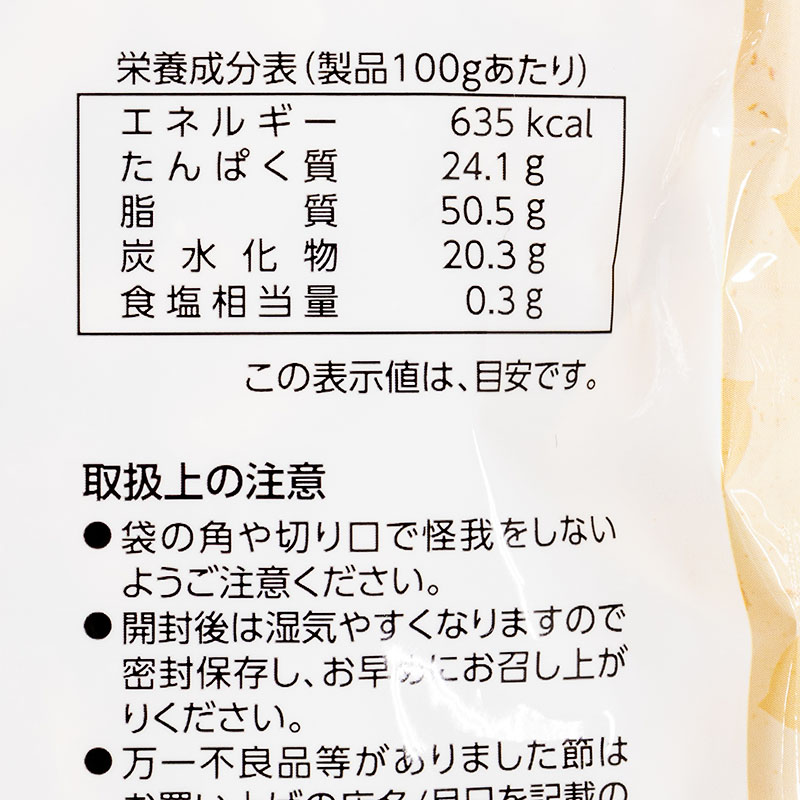 栄養成分表(製品100gあたり)
エネルギー 635 kcal
たんぱく質 24.1 g
脂質 50.5 g
炭水化物 20.3 g
食塩相当量 0.3 g
この表示値は、目安です。
取扱上の注意
●袋の角や切り口で怪我をしない
ようご注意ください。
●開封後は湿気やすくなりますので
密封保存し、お早めにお召し上が
りください。
●万一不良品等がありました節は
お買い上げの店名/月日を記載の